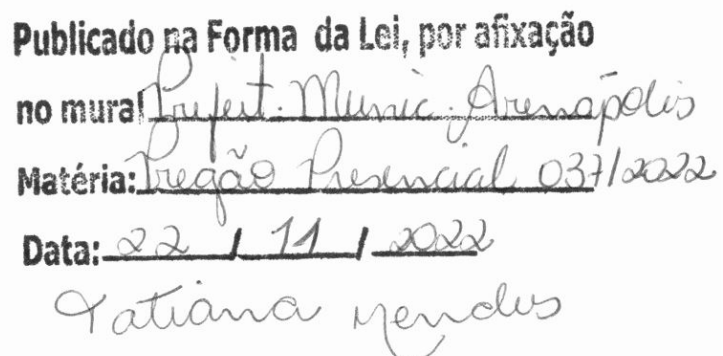 Publicado na Forma da Lei, por afixação
no mural Prefeit. Munic. Arenápolis
Matéria: Pregão Presencial 037/2022
Data: 22 / 11 / 2022
Tatiana Mendes